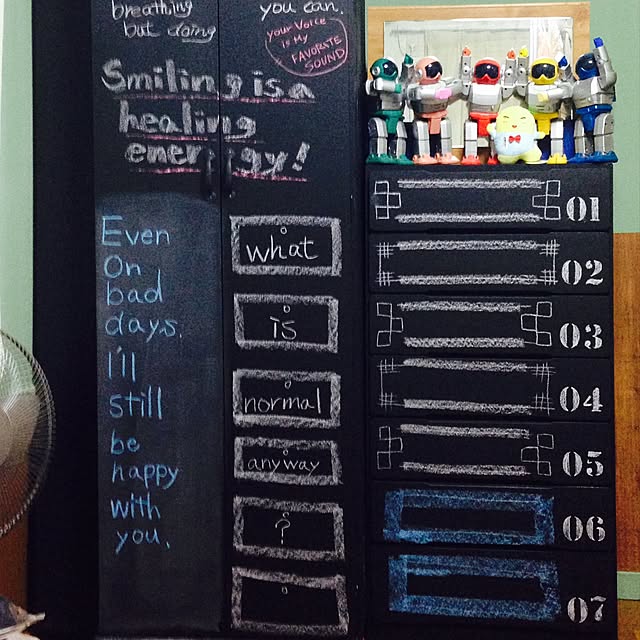 breathing
but doing
you can.
your Voice
is My
FAVORATE
SOUND
Smiling is a
healing
energy!
Even
On
bad
days.
I'll
still
be
happy
with
you.
what
is
normal
anyway
?
01
02
03
04
05
06
07